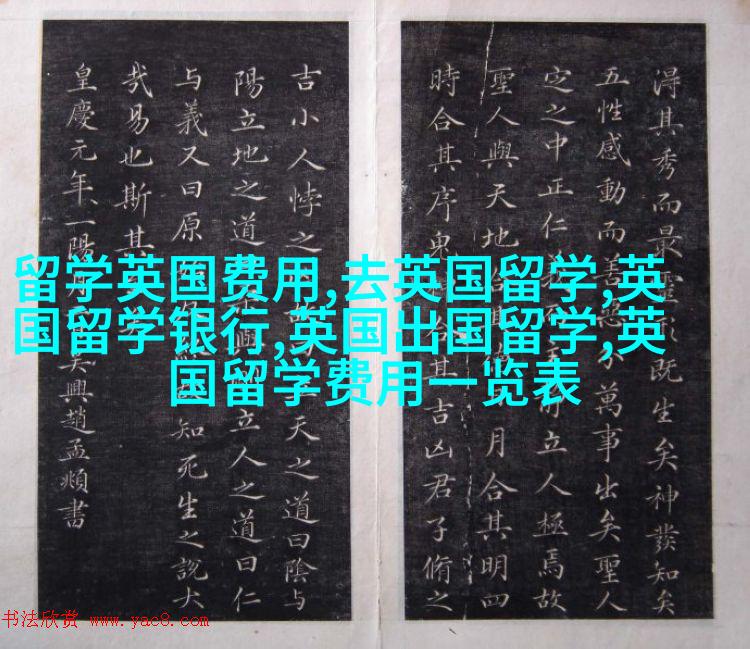 留学英国费用,去英国留学,英
国留学银行,英国出国留学,英
国留学费用一览表
淂其秀而最靈既生矣神發知矣
五性感動而善惡分萬事出矣聖人
定之中正仁立人極焉故
聖人與天地合其月合其明四
時合其序鬼合其吉凶君子脩之
吉小人悖之天之道曰陰与
陽立地之道立人之道曰仁
与義又曰原知死生之說大
哉易也斯其
皇慶元年一陽月吳興趙孟頫書
书法欣赏 www.yac8.com